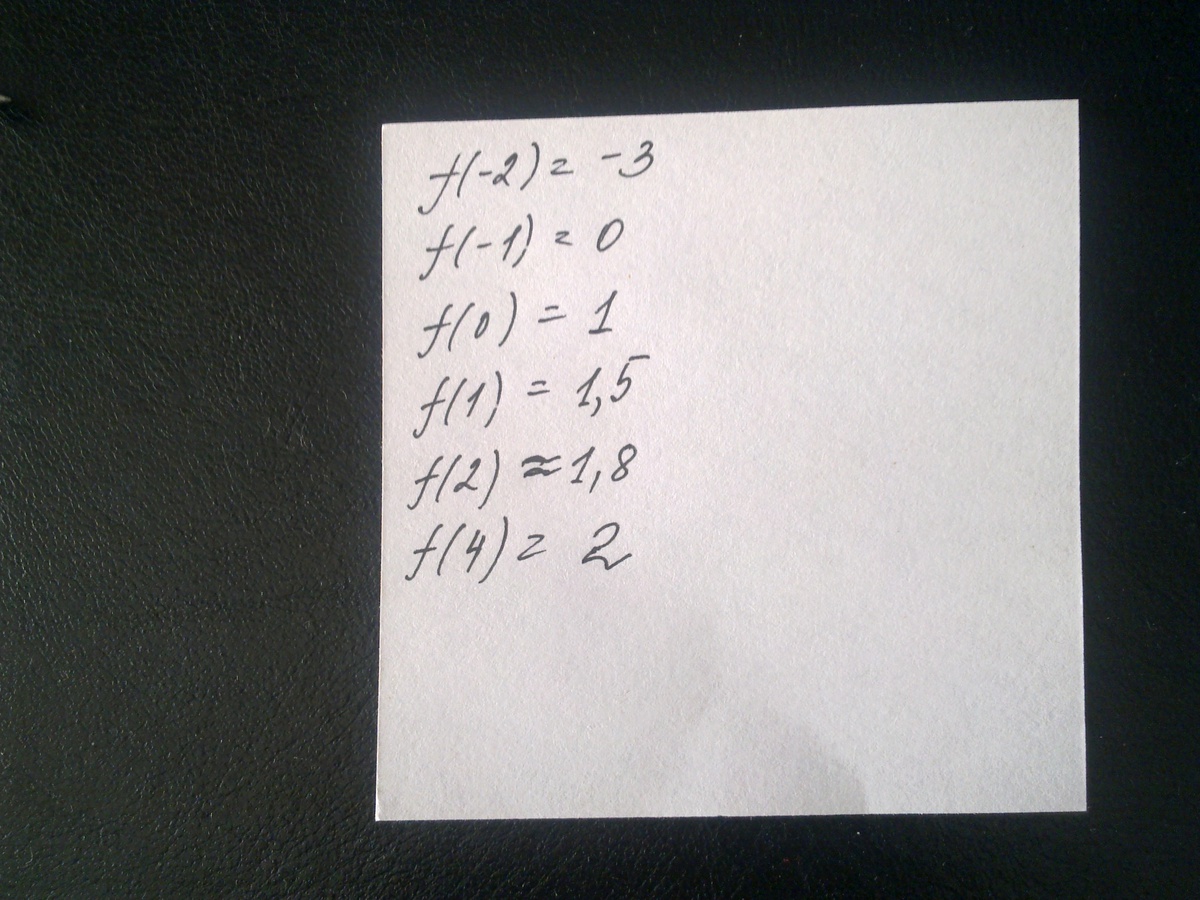 f(-2) = -3
f(-1) = 0
f(0) = 1
f(1) = 1,5
f(2) ≈ 1,8
f(4) = 2